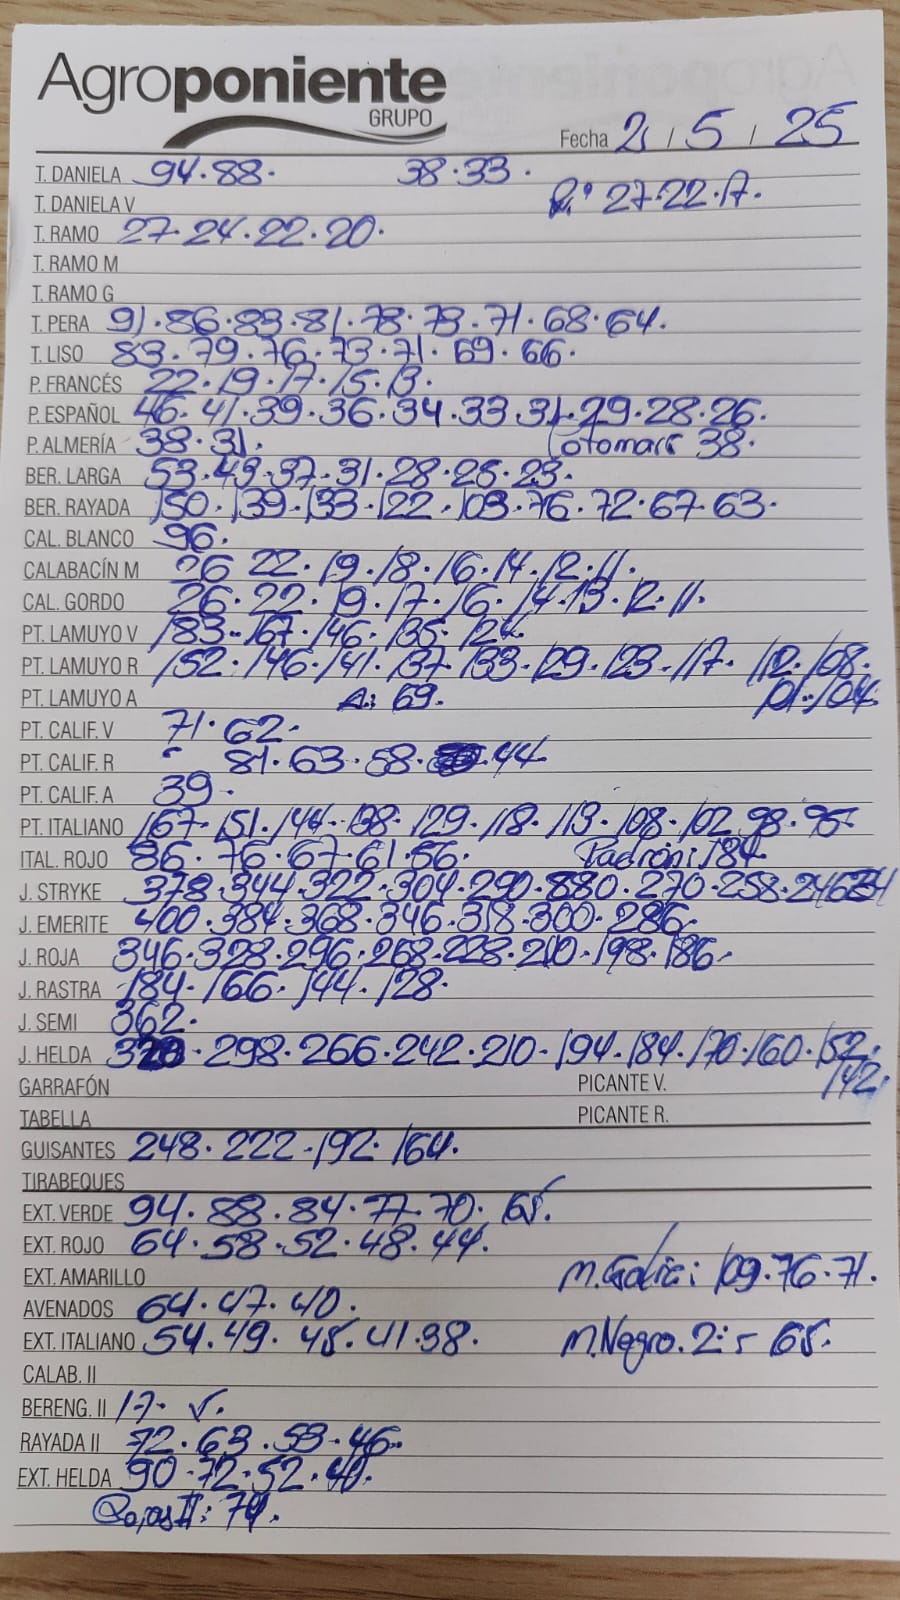 Agroponiente
GRUPO
Fecha 2 / 5 / 25
T. DANIELA 94.88. 38.33.
T. DANIELA V R: 27.22.17.
T. RAMO 27.24.22.20.
T. RAMO M
T. RAMO G
T. PERA 91.86.83.81.78.73.71.68.64.
T. LISO 83.79.76.73.71.69.66.
P. FRANCÉS 22.19.17.15.13.
P. ESPAÑOL 46.41.39.36.34.33.31.29.28.26.
P. ALMERÍA 38.31. 38.
BER. LARGA 53.43.37.31.28.25.23.
BER. RAYADA 150.139.133.122.103.76.72.67.63.
CAL. BLANCO 96.
CALABACÍN M 26 22.19.18.16.14.12.11.
CAL. GORDO 26.22.19.17.16.14.13.12.11.
PT. LAMUYO V 183.167.146.135.124.
PT. LAMUYO R 152.146.141.137.133.129.123.117.112.108.
PT. LAMUYO A A: 69. 101.104.
PT. CALIF. V 71.62.
PT. CALIF. R 81.63.58. 44
PT. CALIF. A 39.
PT. ITALIANO 167.151.144.138.129.118.113.108.102.98.95
ITAL. ROJO 86.76.67.61.56. Padrón: 184.
J. STRYKE 378.344.322.304.290.880.270.258.246
J. EMERITE 400.384.368.346.318.300.286.
J. ROJA 346.328.296.268.228.210.198.186.
J. RASTRA 184.166.144.128.
J. SEMI 362.
J. HELDA 320.298.266.242.210.194.184.170.160.152.
GARRAFÓN PICANTE V. 142.
TABELLA PICANTE R.
GUISANTES 248.222.192.164.
TIRABEQUES
EXT. VERDE 94.88.84.77.70.65.
EXT. ROJO 64.58.52.48.44.
EXT. AMARILLO M. Galia: 109.76.71.
AVENADOS 64.47.40.
EXT. ITALIANO 54.49.45.41.38. M. Negro. 2ª: 65.
CALAB. II
BERENG. II 17. √.
RAYADA II 72.63.53.46.
EXT. HELDA 90.72.52.40.
Rojas II: 74.